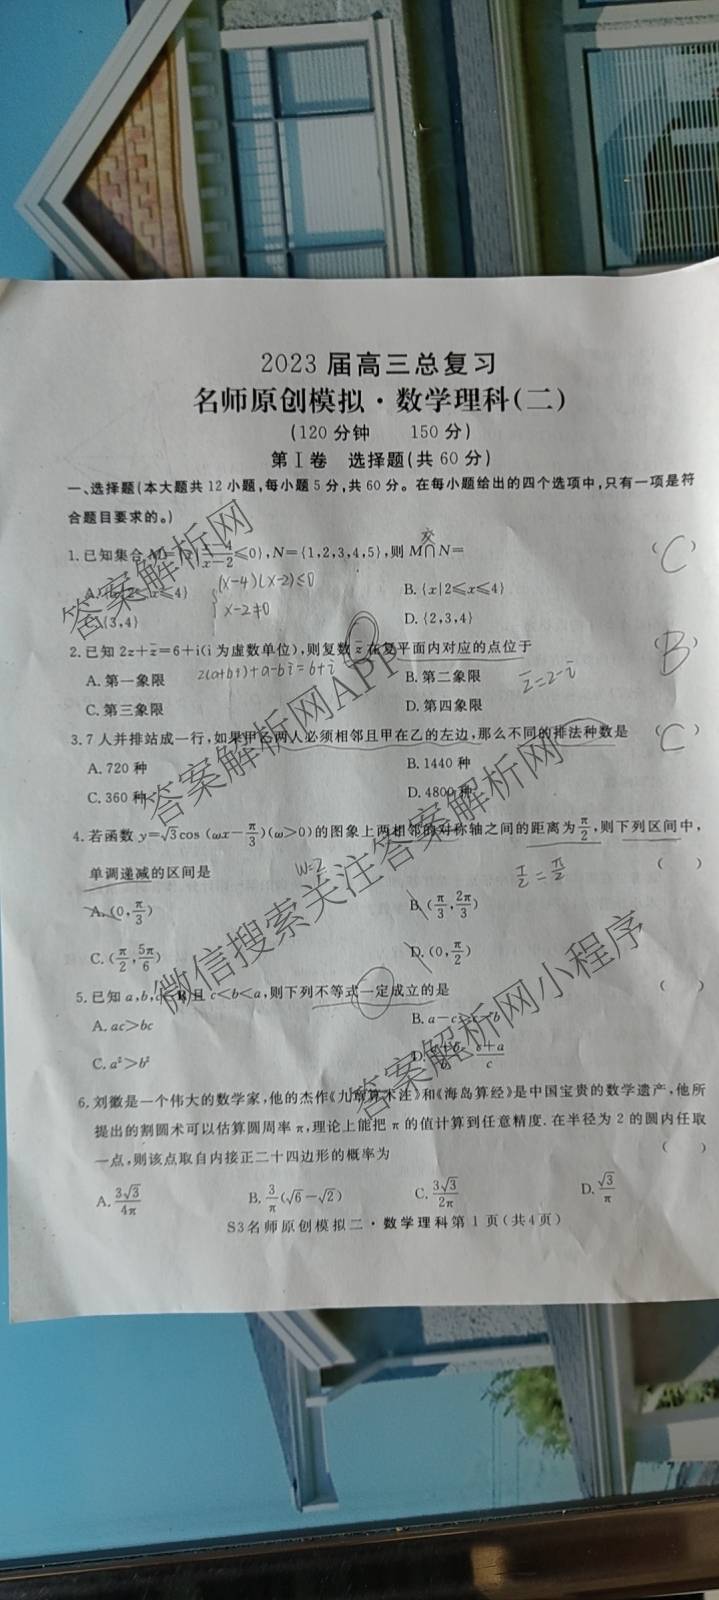 2023届高三总复习
名师原创模拟·数学理科(二)
(120分钟 150分)
第Ⅰ卷 选择题(共60分)
一、选择题(本大题共12小题,每小题5分,共60分。在每小题给出的四个选项中,只有一项是符
合题目要求的。)
1.已知集合 x-4/x-2≤0},N={1,2,3,4,5},则M∩N= (C)
交
x≤4} B.{x|2≤x≤4}
(x-4)(x-2)≤0
x-2≠0
{3,4} D.{2,3,4}
2.已知2z+z̄=6+i(i为虚数单位),则复数z̄在复平面内对应的点位于 (B)
A.第一象限 B.第二象限
2(a+bi)+a-bi=6+i
z̄=2-i
C.第三象限 D.第四象限
3.7人并排站成一行,如果甲乙两人必须相邻且甲在乙的左边,那么不同的排法种数是 (C)
A.720种 B.1440种
C.360种 D.4800种
4.若函数y=√3cos(ωx-π/3)(ω>0)的图象上两相邻的对称轴之间的距离为π/2,则下列区间中,
单调递减的区间是 ( )
w=2
T/2=π/2
A.(0,π/3) B.(π/3,2π/3)
C.(π/2,5π/6) D.(0,π/2)
5.已知a,b,c∈R且c<b<a,则下列不等式一定成立的是 ( )
A.ac>bc B.a-c>
C.a²>b² c+a/c
6.刘徽是一个伟大的数学家,他的杰作《九章算术注》和《海岛算经》是中国宝贵的数学遗产,他所
提出的割圆术可以估算圆周率π,理论上能把π的值计算到任意精度.在半径为2的圆内任取
一点,则该点取自内接正二十四边形的概率为 ( )
A.3√3/4π B.3/π(√6-√2) C.3√3/2π D.√3/π
S3名师原创模拟二·数学理科第1页(共4页)
答案解析网
答案解析网APP
微信搜索关注答案解析网
答案解析网小程序